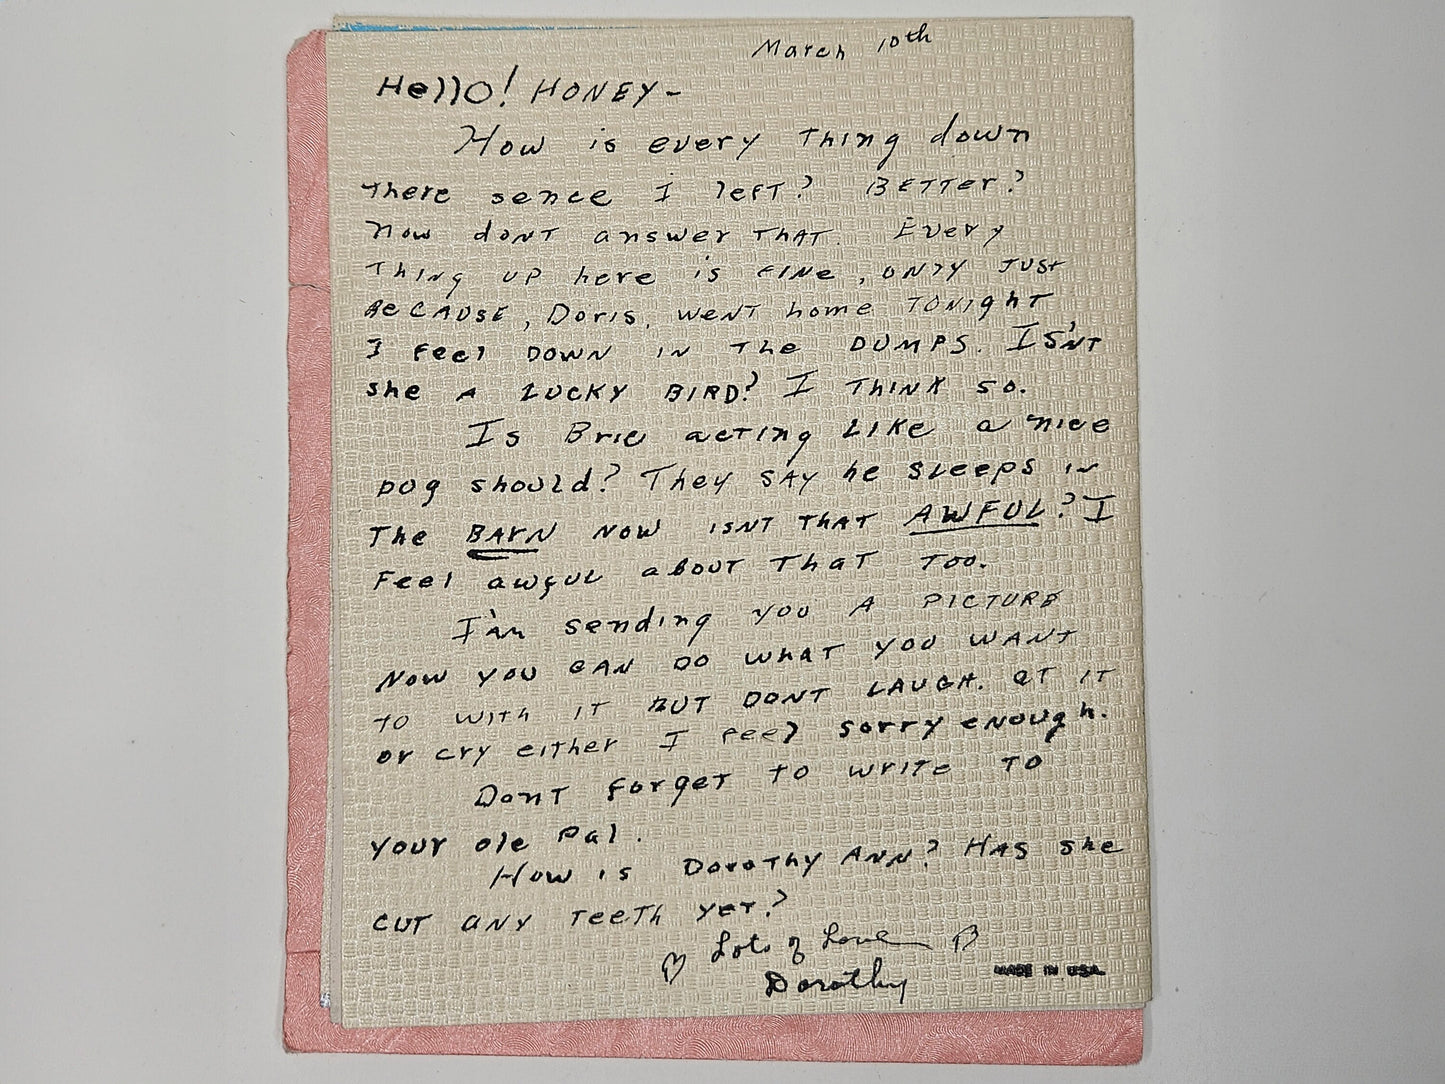 March 10th
Hello! HONEY-
How is every thing down
there sence I left? BETTer?
Now dont answer THAT. Every
THing UP here is FINe, ONly JUSt
BeCAUSE, Doris, weNT home TONight
I Feel DOWN iN The DUMPS. ISN'T
she A LUCKY BIRD? I THINK so.
Is Brie acTing LIKe a nice
DOg should? They SAY he SLeePS iN
The BARN NOW ISNT THAT AWFUL? I
Feel awful about That Too.
I'am sending you A PICTURE
NOW you CAN DO WhAT you WANT
TO WITH IT BUT DONT LAUGH. aT IT
or cry either I Feel sorry enough.
DonT Forget To write TO
your ole Pal.
How is Dorothy ANN? HAS She
CUT ANY TeeTh YeT?
♡ Lots of Love ♡
Dorothy
MADE IN USA.